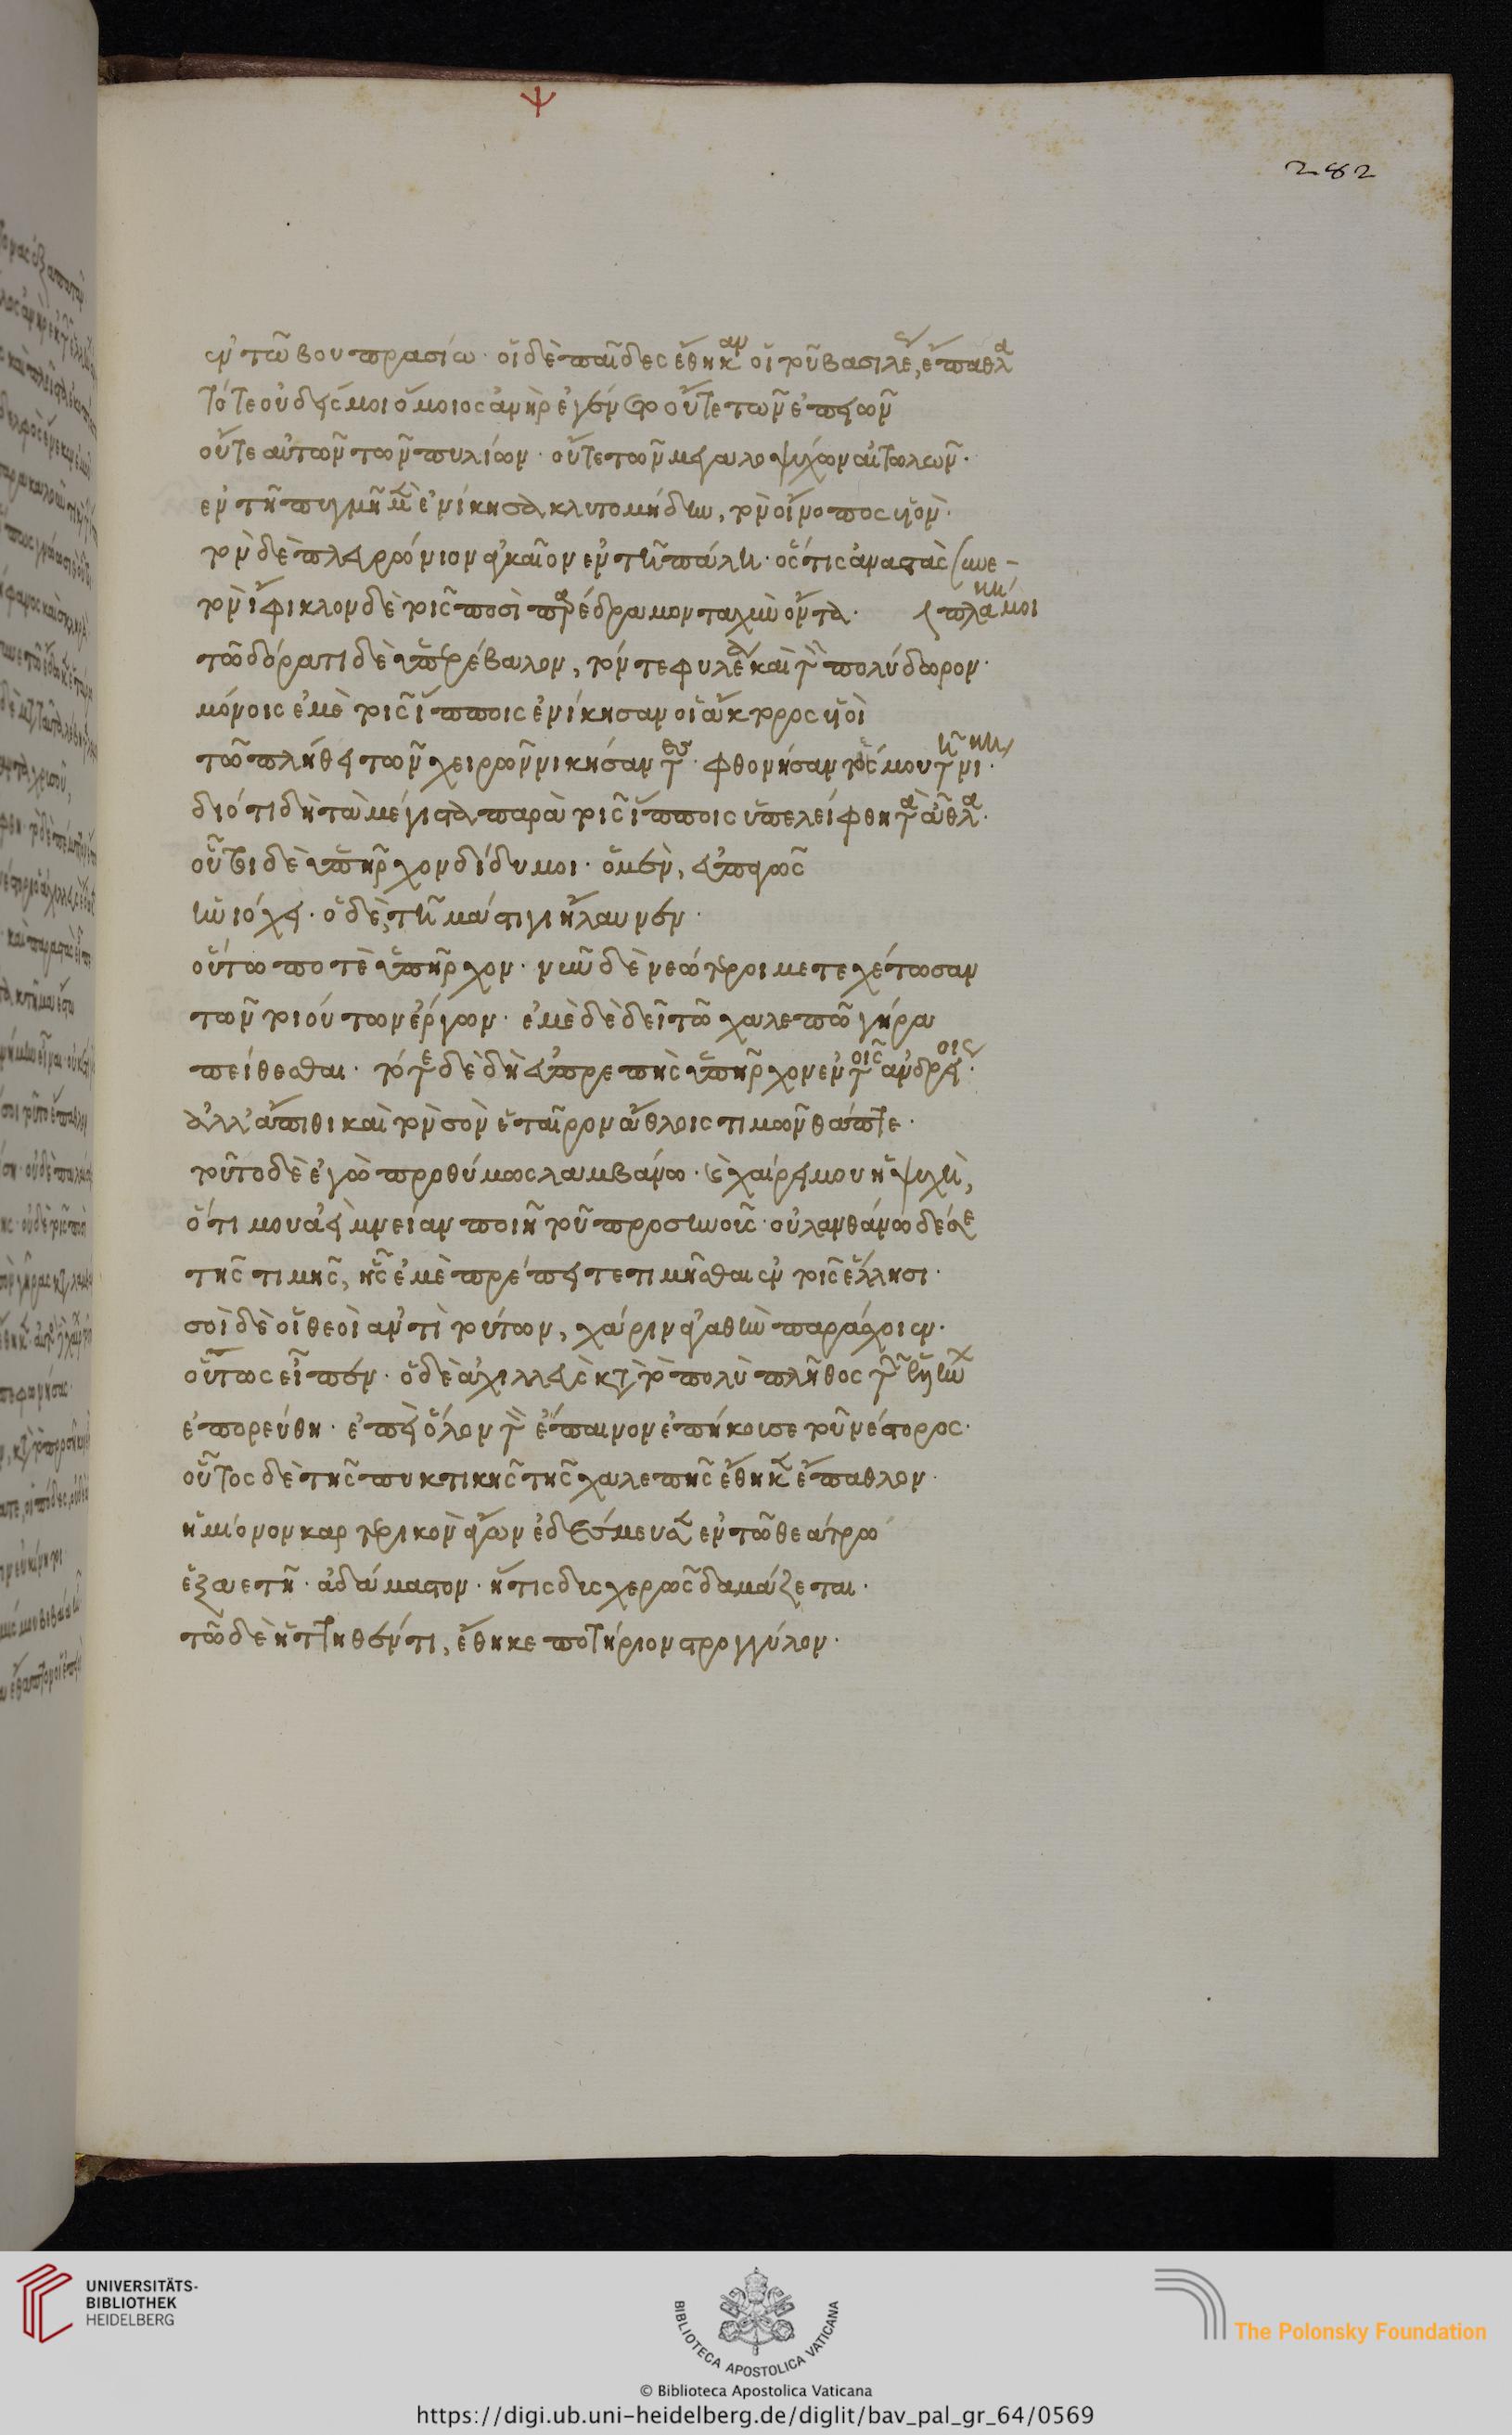 Ψ
282
ἐν τῶ βουπρασίω· οἱ δὲ παῖδες ἔθηκαν οἱ τοῦ βασιλέως, ἔπαθλα
τότε οὐδείς μοι ὅμοιος ἀνὴρ ἐγένετο οὔτε τῶν ἐπειῶν
οὔτε αὐτῶν τῶν πυλίων· οὔτε τῶν μεγαλοψύχων αἰτωλῶν·
ἐν τῆ πυγμῆ μὲν ἐνίκησα κλυτομήδην, τὸν οἴνοπος υἱόν·
τὸν δὲ πλευρώνιον ἀγκαῖον ἐν τῆ πάλη· ὅστις ἀναστὰς συνε-
πλάκη μοι
τὸν ἴφικλον δὲ τοῖς ποσὶ παρέδραμον ταχὺν ὄντα·
τῶ δόρατι δὲ ὑπερέβαλον, τόν τε φυλέα καὶ τὸν πολύδωρον·
μόνοις ἐμὲ τοῖς ἵπποις ἐνίκησαν οἱ ἄκτορος υἱοὶ
τῶ πλήθει τῶν χειρῶν νικήσαντες· φθονήσαντές μου τῆ νίκη·
διότι δὴ τὰ μέγιστα παρὰ τοῖς ἵπποις ὑπελείφθη τὰ ἆθλα·
οὗτοι δὲ ὑπῆρχον δίδυμοι· ὁ μὲν,
ἡνιόχει· ὁ δὲ, τῆ μάστιγι ἤλαυνεν·
οὕτω ποτὲ ὑπῆρχον· νῦν δὲ νεώτεροι μετεχέτωσαν
τῶν τοιούτων ἔργων· ἐμὲ δὲ δεῖ τῶ χαλεπῶ γήρα
πείθεσθαι· τότε δὲ δὴ εὐπρεπὴς ὑπῆρχον ἐν τοῖς ἀνδρείοις·
ἀλλ' ἄπιθι καὶ τὸν σὸν ἑταῖρον ἄθλοις τιμῶν θάπτε·
τοῦτο δὲ ἐγὼ προθύμως λαμβάνω· καὶ χαίρει μου ἡ ψυχὴ,
ὅτι μου ἀεὶ μνείαν ποιῆ τοῦ προσηνοῦς· οὐ λανθάνω δέ σε
τῆς τιμῆς, ἧς ἐμὲ πρέπει τετιμῆσθαι ἐν τοῖς ἕλλησι·
σοὶ δὲ οἱ θεοὶ ἀντὶ τούτων, χάριν ἀγαθὴν παράσχοιεν·
οὕτως εἶπεν· ὁ δὲ ἀχιλλεὺς κατὰ τὸ πολὺ πλῆθος τῶν ἑλλήνων
ἐπορεύθη· ἐπεὶ ὅλον τὸν ἔπαινον ἐπήκουσε τοῦ νέστορος·
οὗτος δὲ τῆς πυκτικῆς τῆς χαλεπῆς ἔθηκεν ἔπαθλον·
ἡμίονον καρτερικὸν ἄγων ἐδέσμευσεν ἐν τῶ θεάτρω
ἑξαετῆ· ἀδάμαστον· ἥτις δυσχερῶς δαμάζεται·
τῶ δὲ ἡττηθέντι, ἔθηκε ποτήριον στρογγύλον·
UNIVERSITÄTS-
BIBLIOTHEK
HEIDELBERG
BIBLIOTECA APOSTOLICA VATICANA
The Polonsky Foundation
© Biblioteca Apostolica Vaticana
https://digi.ub.uni-heidelberg.de/diglit/bav_pal_gr_64/0569